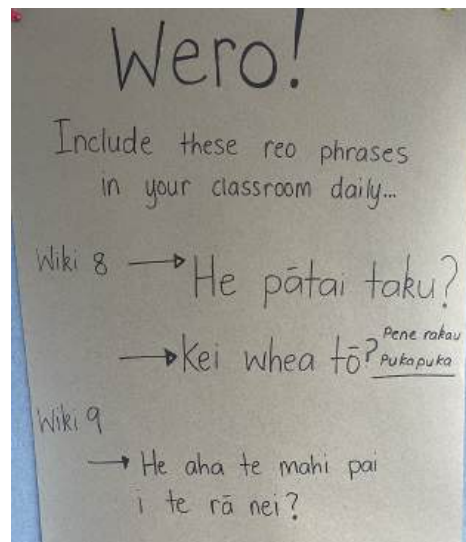 Wero!
Include these reo phrases
in your classroom daily...
Wiki 8 → He pātai taku?
→ Kei whea tō? Pene rakau
Pukapuka
Wiki 9
→ He aha te mahi pai
i te rā nei?